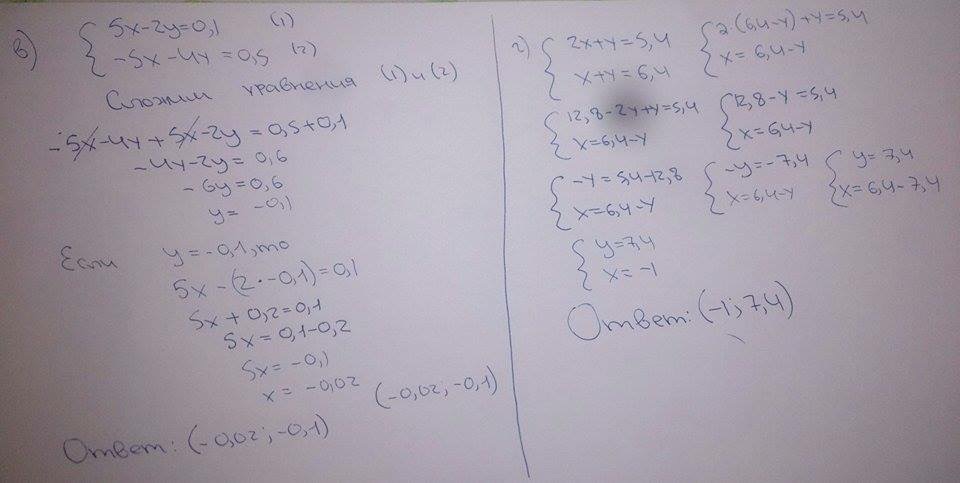 в) { 5x-2y=0,1 (1)
{ -5x-4y=0,5 (2)
Сложим уравнения (1) и (2)
-5x-4y+5x-2y=0,5+0,1
-4y-2y=0,6
-6y=0,6
y= -0,1
Если y=-0,1, то
5x-(2·-0,1)=0,1
5x+0,2=0,1
5x=0,1-0,2
5x=-0,1
x= -0,02 (-0,02; -0,1)
Ответ: (-0,02; -0,1)
г) { 2x+y=5,4 { 2·(6,4-y)+y=5,4
{ x+y=6,4 { x=6,4-y
{ 12,8-2y+y=5,4 { 12,8-y=5,4
{ x=6,4-y { x=6,4-y
{ -y=5,4-12,8 { -y=-7,4 { y=7,4
{ x=6,4-y { x=6,4-y { x=6,4-7,4
{ y=7,4
{ x=-1
Ответ: (-1; 7,4)